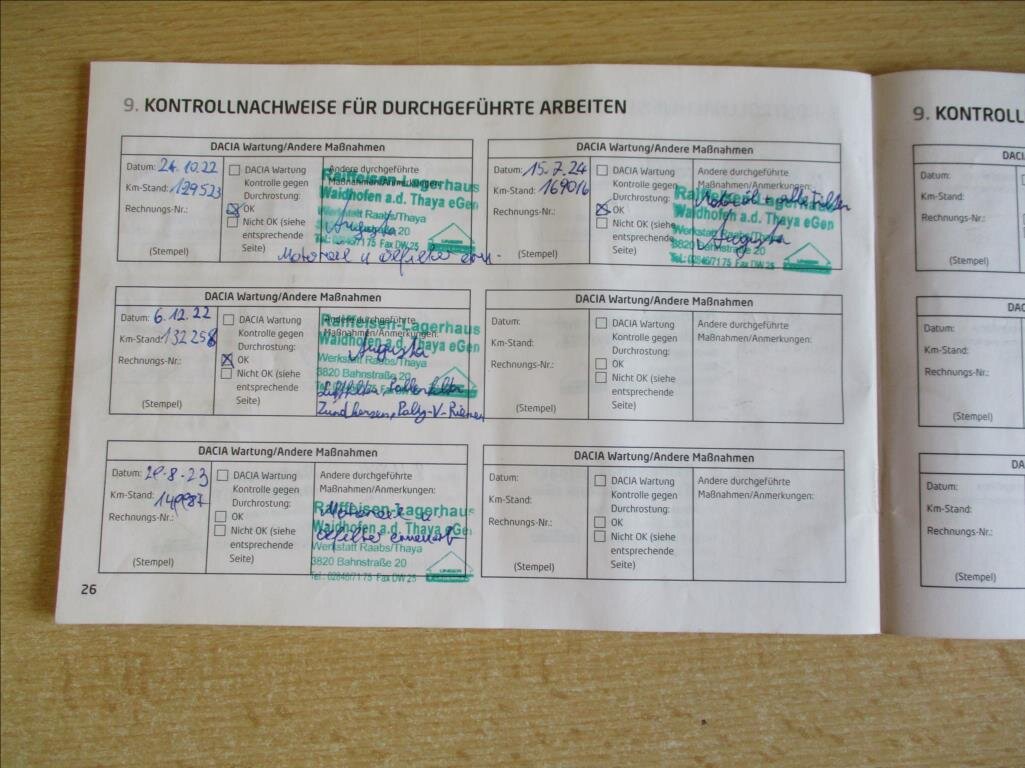 9. KONTROLLNACHWEISE FÜR DURCHGEFÜHRTE ARBEITEN
DACIA Wartung/Andere Maßnahmen
Datum: 24.10.22
Km-Stand: 129523
Rechnungs-Nr.:
(Stempel)
DACIA Wartung
Kontrolle gegen
Durchrostung:
OK
Nicht OK (siehe
entsprechende
Seite)
Andere durchgeführte
Maßnahmen/Anmerkungen:
Raiffeisen-Lagerhaus
Waidhofen a.d. Thaya eGen
Werkstatt Raabs/Thaya
Tel.: 02846/71 75 Fax DW 25
UNSER
Motoroel u oelfilter ern.
DACIA Wartung/Andere Maßnahmen
Datum: 15.7.24
Km-Stand: 169016
Rechnungs-Nr.:
(Stempel)
DACIA Wartung
Kontrolle gegen
Durchrostung:
OK
Nicht OK (siehe
entsprechende
Seite)
Andere durchgeführte
Maßnahmen/Anmerkungen:
Motoröl + alle Filter
Raiffeisen-Lagerhaus
Waidhofen a.d. Thaya eGen
Werkstatt Raabs/Thaya
3820 Bahnstraße 20
Tel.: 02846/71 75 Fax DW 25
DACIA Wartung/Andere Maßnahmen
Datum: 6.12.22
Km-Stand: 132258
Rechnungs-Nr.:
(Stempel)
DACIA Wartung
Kontrolle gegen
Durchrostung:
OK
Nicht OK (siehe
entsprechende
Seite)
Andere durchgeführte
Maßnahmen/Anmerkungen:
Raiffeisen-Lagerhaus
Waidhofen a.d. Thaya eGen
Werkstatt Raabs/Thaya
3820 Bahnstraße 20
Luftfilter, Pollenfilter
Zündkerzen, Poly-V-Riemen
DACIA Wartung/Andere Maßnahmen
Datum:
Km-Stand:
Rechnungs-Nr.:
(Stempel)
DACIA Wartung
Kontrolle gegen
Durchrostung:
OK
Nicht OK (siehe
entsprechende
Seite)
Andere durchgeführte
Maßnahmen/Anmerkungen:
DACIA Wartung/Andere Maßnahmen
Datum: 29.8.23
Km-Stand: 149987
Rechnungs-Nr.:
(Stempel)
DACIA Wartung
Kontrolle gegen
Durchrostung:
OK
Nicht OK (siehe
entsprechende
Seite)
Andere durchgeführte
Maßnahmen/Anmerkungen:
Raiffeisen-Lagerhaus
Motoroel u
Waidhofen a.d. Thaya eGen
oelfilter erneuert
Werkstatt Raabs/Thaya
3820 Bahnstraße 20
Tel.: 02846/71 75 Fax DW 25
UNSER
DACIA Wartung/Andere Maßnahmen
Datum:
Km-Stand:
Rechnungs-Nr.:
(Stempel)
DACIA Wartung
Kontrolle gegen
Durchrostung:
OK
Nicht OK (siehe
entsprechende
Seite)
Andere durchgeführte
Maßnahmen/Anmerkungen:
26
9. KONTROLL
DACI
Datum:
Km-Stand:
Rechnungs-Nr.:
(Stempel)
DAC
Datum:
Km-Stand:
Rechnungs-Nr.:
(Stempel)
DA
Datum:
Km-Stand:
Rechnungs-Nr.:
(Stempel)